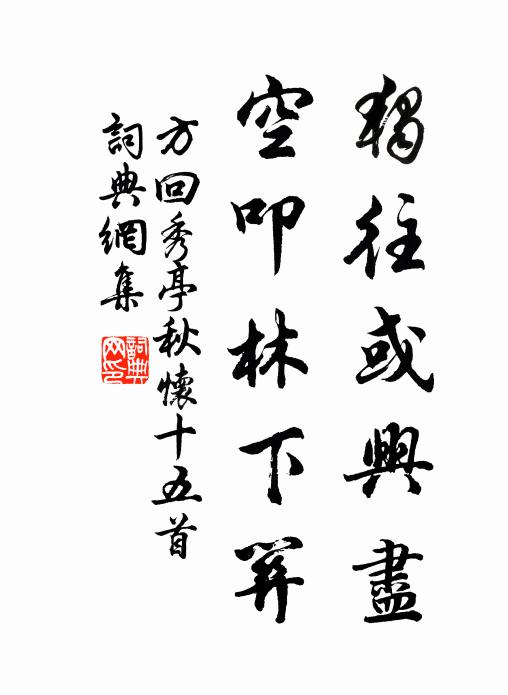 獨往或興盡
空叩林下關
方回秀亭秋懷十五首
詞典網集
詞典
网印